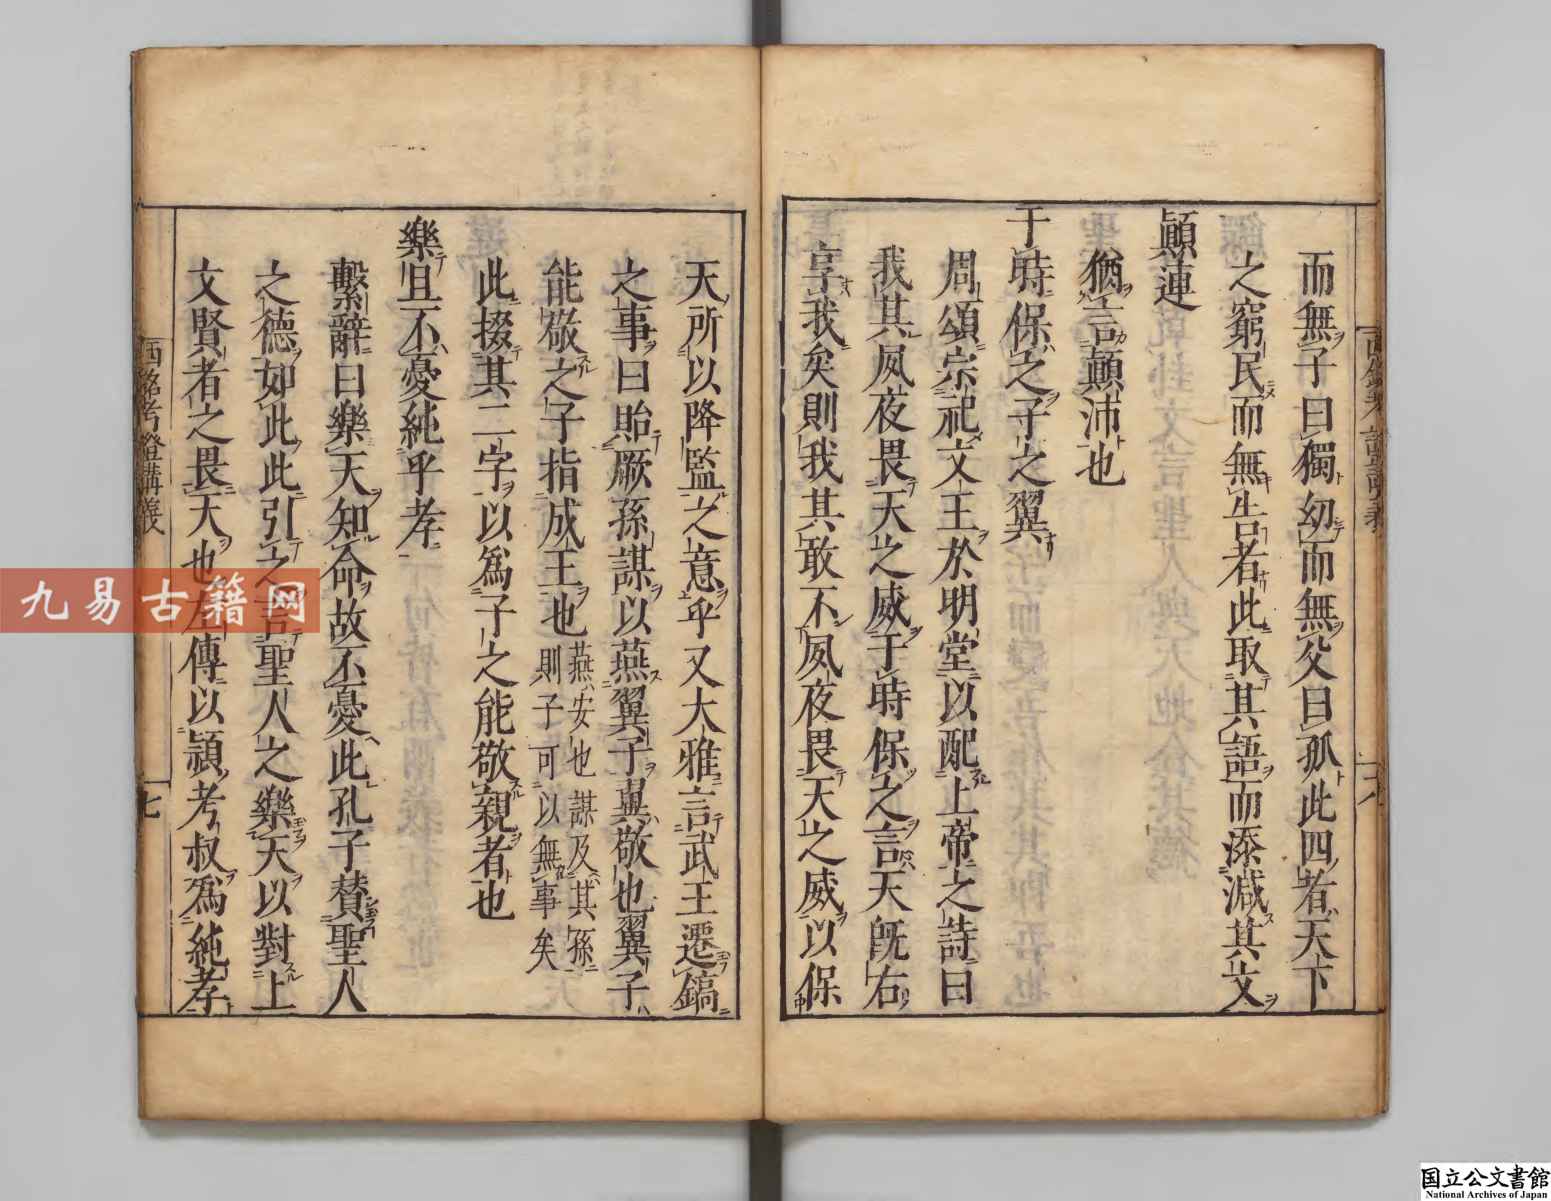 而無子曰獨幼而無父曰孤此四者天下
之窮民而無告者此取其語而添減其文
顛連
猶言顛沛也
于時保之子之翼
周頌宗祀文王於明堂以配上帝之詩曰
我其夙夜畏天之威于時保之言天既右
享我矣則我其敢不夙夜畏天之威以保
天所以降監之意乎又大雅言武王遷鎬
之事曰貽厥孫謀以燕翼子翼敬也翼子
能敬之子指成王也燕安也謀及其孫
則子可以無事矣
此掇其二字以爲子之能敬親者也
樂且不憂純乎孝
繫辭曰樂天知命故不憂此孔子賛聖人
之德如此此引之言聖人之樂天以對上
文賢者之畏天也左傳以頴考叔爲純孝
西銘考證講義
七
九易古籍网
国立公文書館
National Archives of Japan